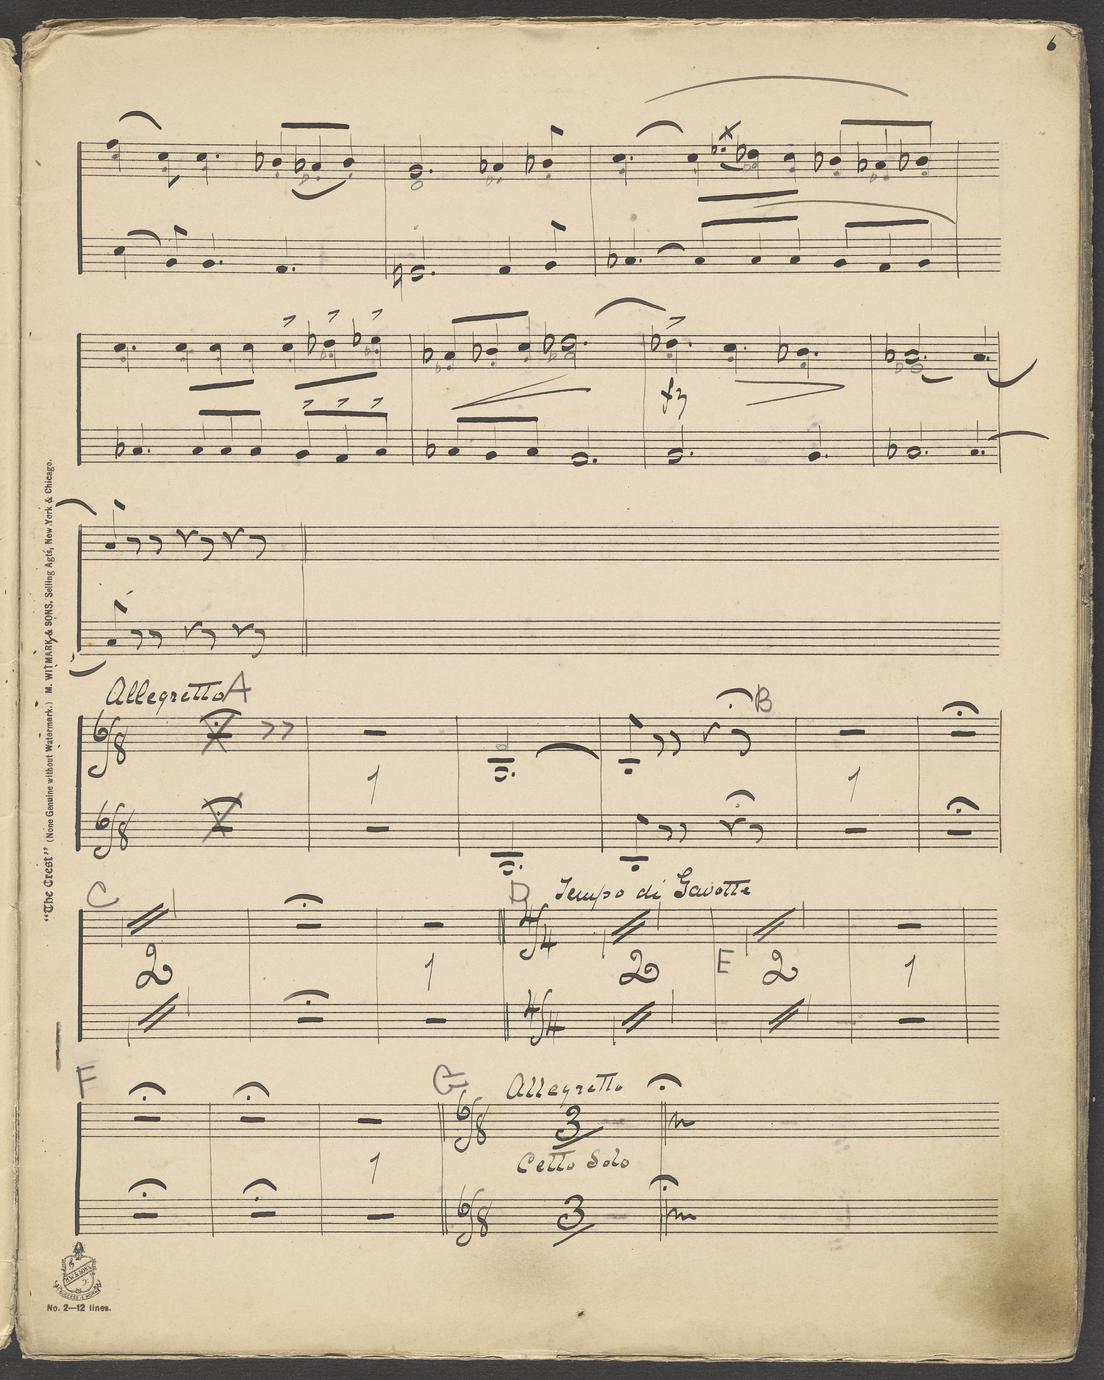 6
fz
"The Crest" (None Genuine without Watermark.) M. WITMARK & SONS. Selling Agts, New York & Chicago.
Allegretto A
B
6/8
1
1
6/8
C
D Tempo di Gavotte
4/4
2
1
2
E
2
1
4/4
F
G Allegretto
6/8
3
1
Cello Solo
6/8
3
No. 2—12 lines.